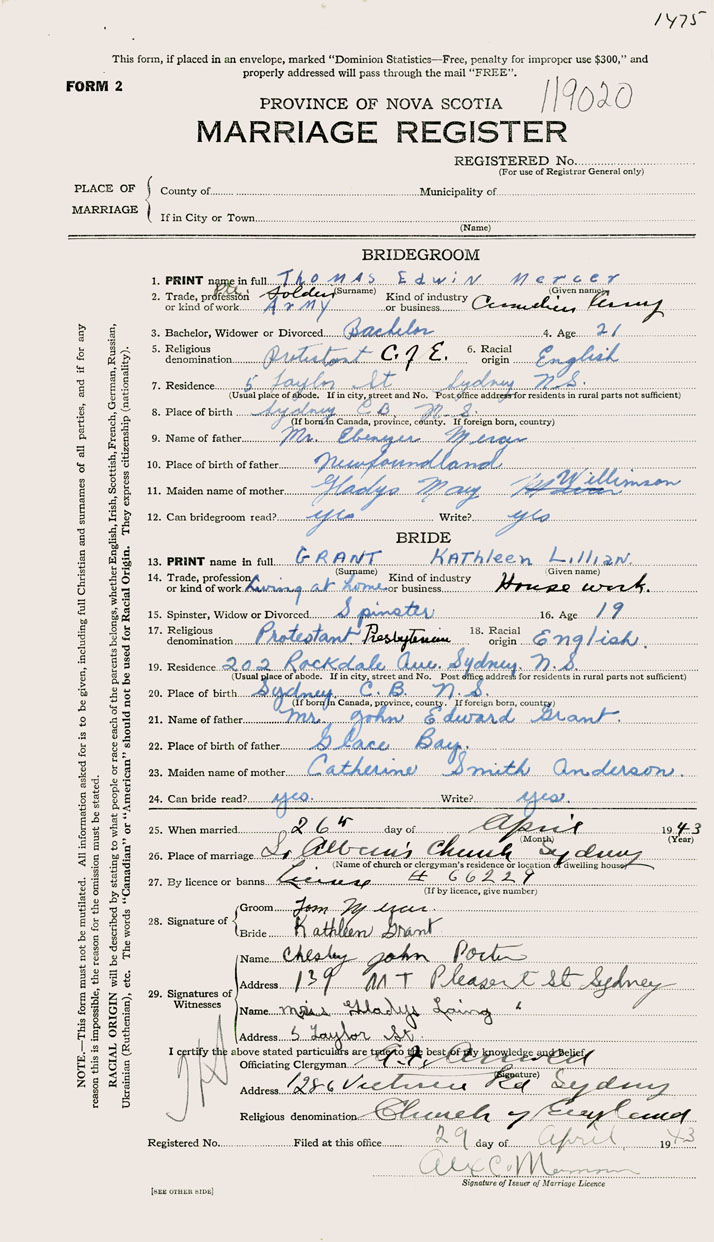 1475
This form, if placed in an envelope, marked "Dominion Statistics—Free, penalty for improper use $300," and
properly addressed will pass through the mail "FREE".
FORM 2
119020
PROVINCE OF NOVA SCOTIA
MARRIAGE REGISTER
REGISTERED No.
(For use of Registrar General only)
PLACE OF MARRIAGE
County of Municipality of
If in City or Town
(Name)
BRIDEGROOM
1. PRINT name in full Thomas Edwin Mercer
(Surname) (Given name)
2. Trade, profession or kind of work Pte. Soldier Army Kind of industry or business Canadian Army
3. Bachelor, Widower or Divorced Bachelor 4. Age 21
5. Religious denomination Protestant C. of E. 6. Racial origin English
7. Residence 5 Taylor St Sydney N.S.
(Usual place of abode. If in city, street and No. Post office address for residents in rural parts not sufficient)
8. Place of birth Sydney C.B. N.S.
(If born in Canada, province, county. If foreign born, country)
9. Name of father Mr. Ebenezer Mercer
10. Place of birth of father Newfoundland
11. Maiden name of mother Gladys May Willimson
12. Can bridegroom read? yes Write? yes
BRIDE
13. PRINT name in full GRANT Kathleen Lillian
(Surname) (Given name)
14. Trade, profession or kind of work Living at home Kind of industry or business House work.
15. Spinster, Widow or Divorced Spinster 16. Age 19
17. Religious denomination Protestant Presbyterian 18. Racial origin English.
19. Residence 202 Rockdale Ave. Sydney. N.S.
(Usual place of abode. If in city, street and No. Post office address for residents in rural parts not sufficient)
20. Place of birth Sydney, C.B. N.S.
(If born in Canada, province, county. If foreign born, country)
21. Name of father Mr. John Edward Grant.
22. Place of birth of father Glace Bay.
23. Maiden name of mother Catherine Smith Anderson.
24. Can bride read? yes. Write? yes.
25. When married 26th day of April 1943
(Month) (Year)
26. Place of marriage St Alban's Church Sydney
(Name of church or clergyman's residence or location of dwelling house)
27. By licence or banns License # 66229
(If by licence, give number)
28. Signature of
Groom Tom Mercer
Bride Kathleen Grant
29. Signatures of Witnesses
Name Chesley John Porter
Address 139 MT Pleasert St Sydney
Name Miss Gladys Laing
Address 5 Taylor St.
I certify the above stated particulars are true to the best of my knowledge and belief.
Officiating Clergyman
(Signature)
Address 1286 Victoria Rd Sydney
Religious denomination Church of England
Registered No. Filed at this office 29 day of April 1943
Alex C.
Signature of Issuer of Marriage Licence
[SEE OTHER SIDE]
NOTE.—This form must not be mutilated. All information asked for is to be given, including full Christian and surnames of all parties, and if for any
reason this is impossible, the reason for the omission must be stated.
RACIAL ORIGIN will be described by stating to what people or race each of the parents belongs, whether English, Irish, Scottish, French, German, Russian,
Ukrainian (Ruthenian), etc. The words "Canadian" or "American" should not be used for Racial Origin. They express citizenship (nationality).